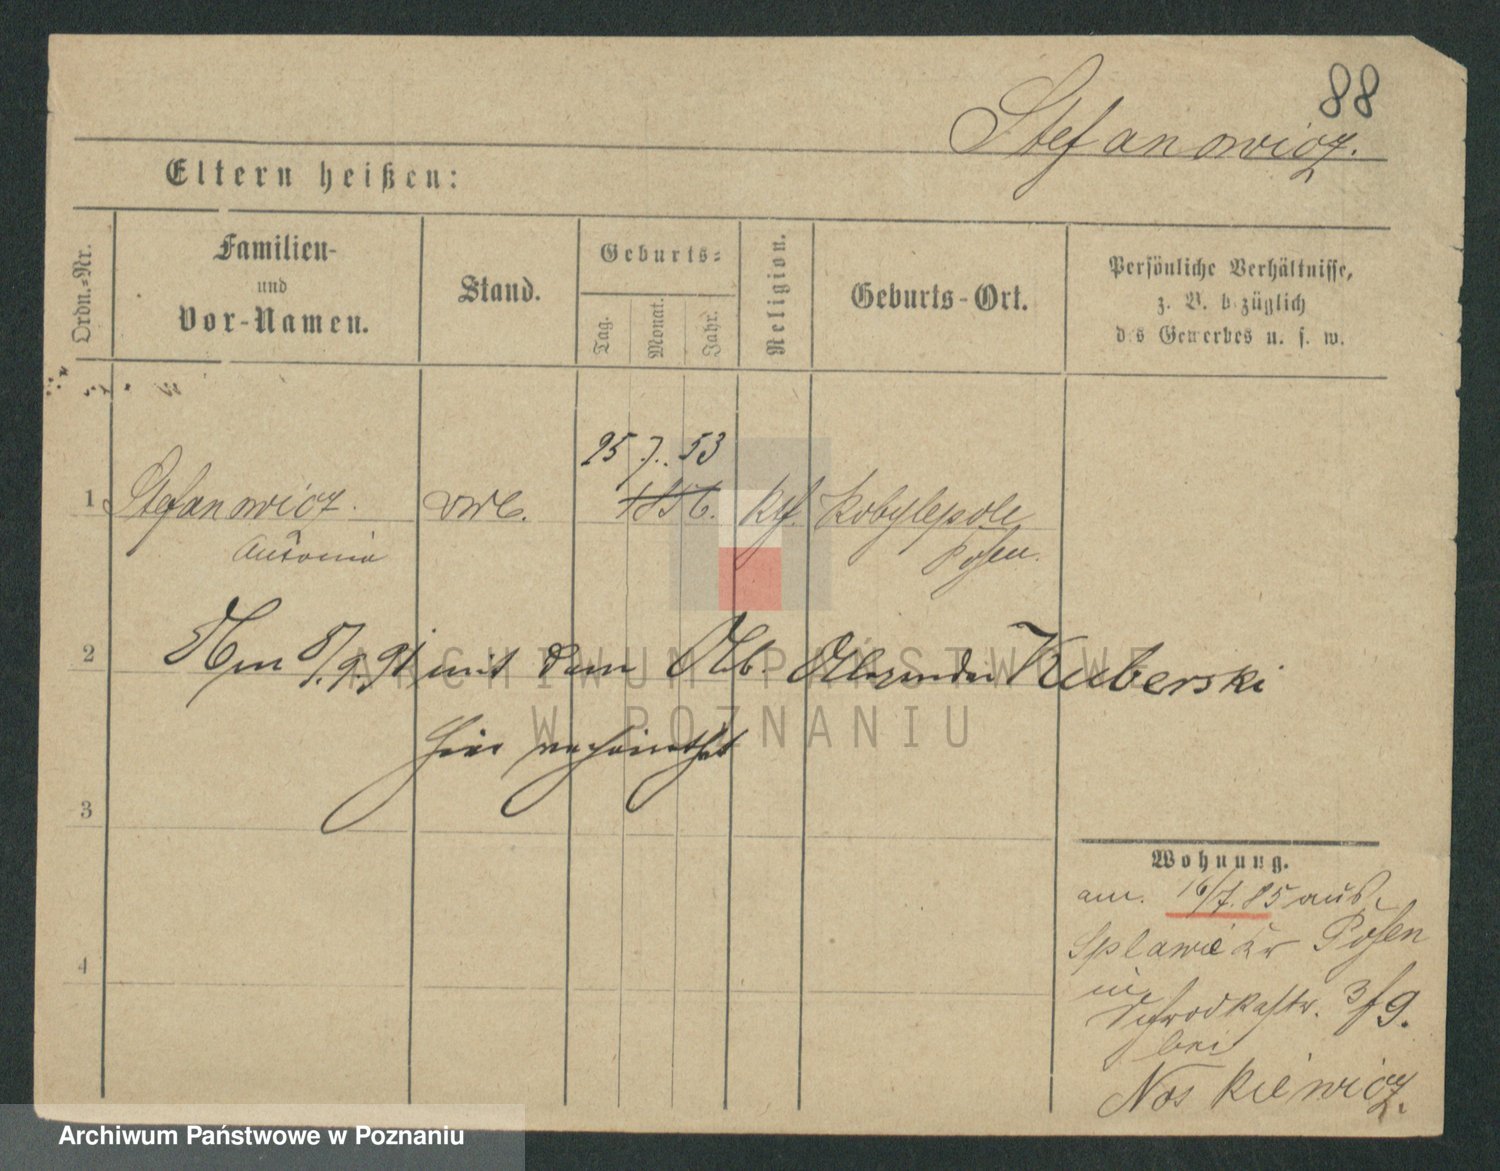 88
Stefanowicz.
Eltern heißen:
Ordn.-Nr.
Familien-
und
Vor-Namen.
Stand.
Geburts-
Tag.
Monat.
Jahr.
Religion.
Geburts-Ort.
Persönliche Verhältnisse,
z. B. bezüglich
des Gewerbes u. s. w.
25 7. 53
1 Stefanowicz. 1856. kth. Kobylepole
Antonia Posen.
2 Am 8/9.91 mit dem Arb. Alexander Kuberski
hier verheirathet
3
4
Wohnung.
am. 16/7.85 aus
Splawie Kr Posen
in
Schrodkastr. 3/9.
bei
Noskiewicz.
ARCHIWUM PAŃSTWOWE
W POZNANIU
Archiwum Państwowe w Poznaniu